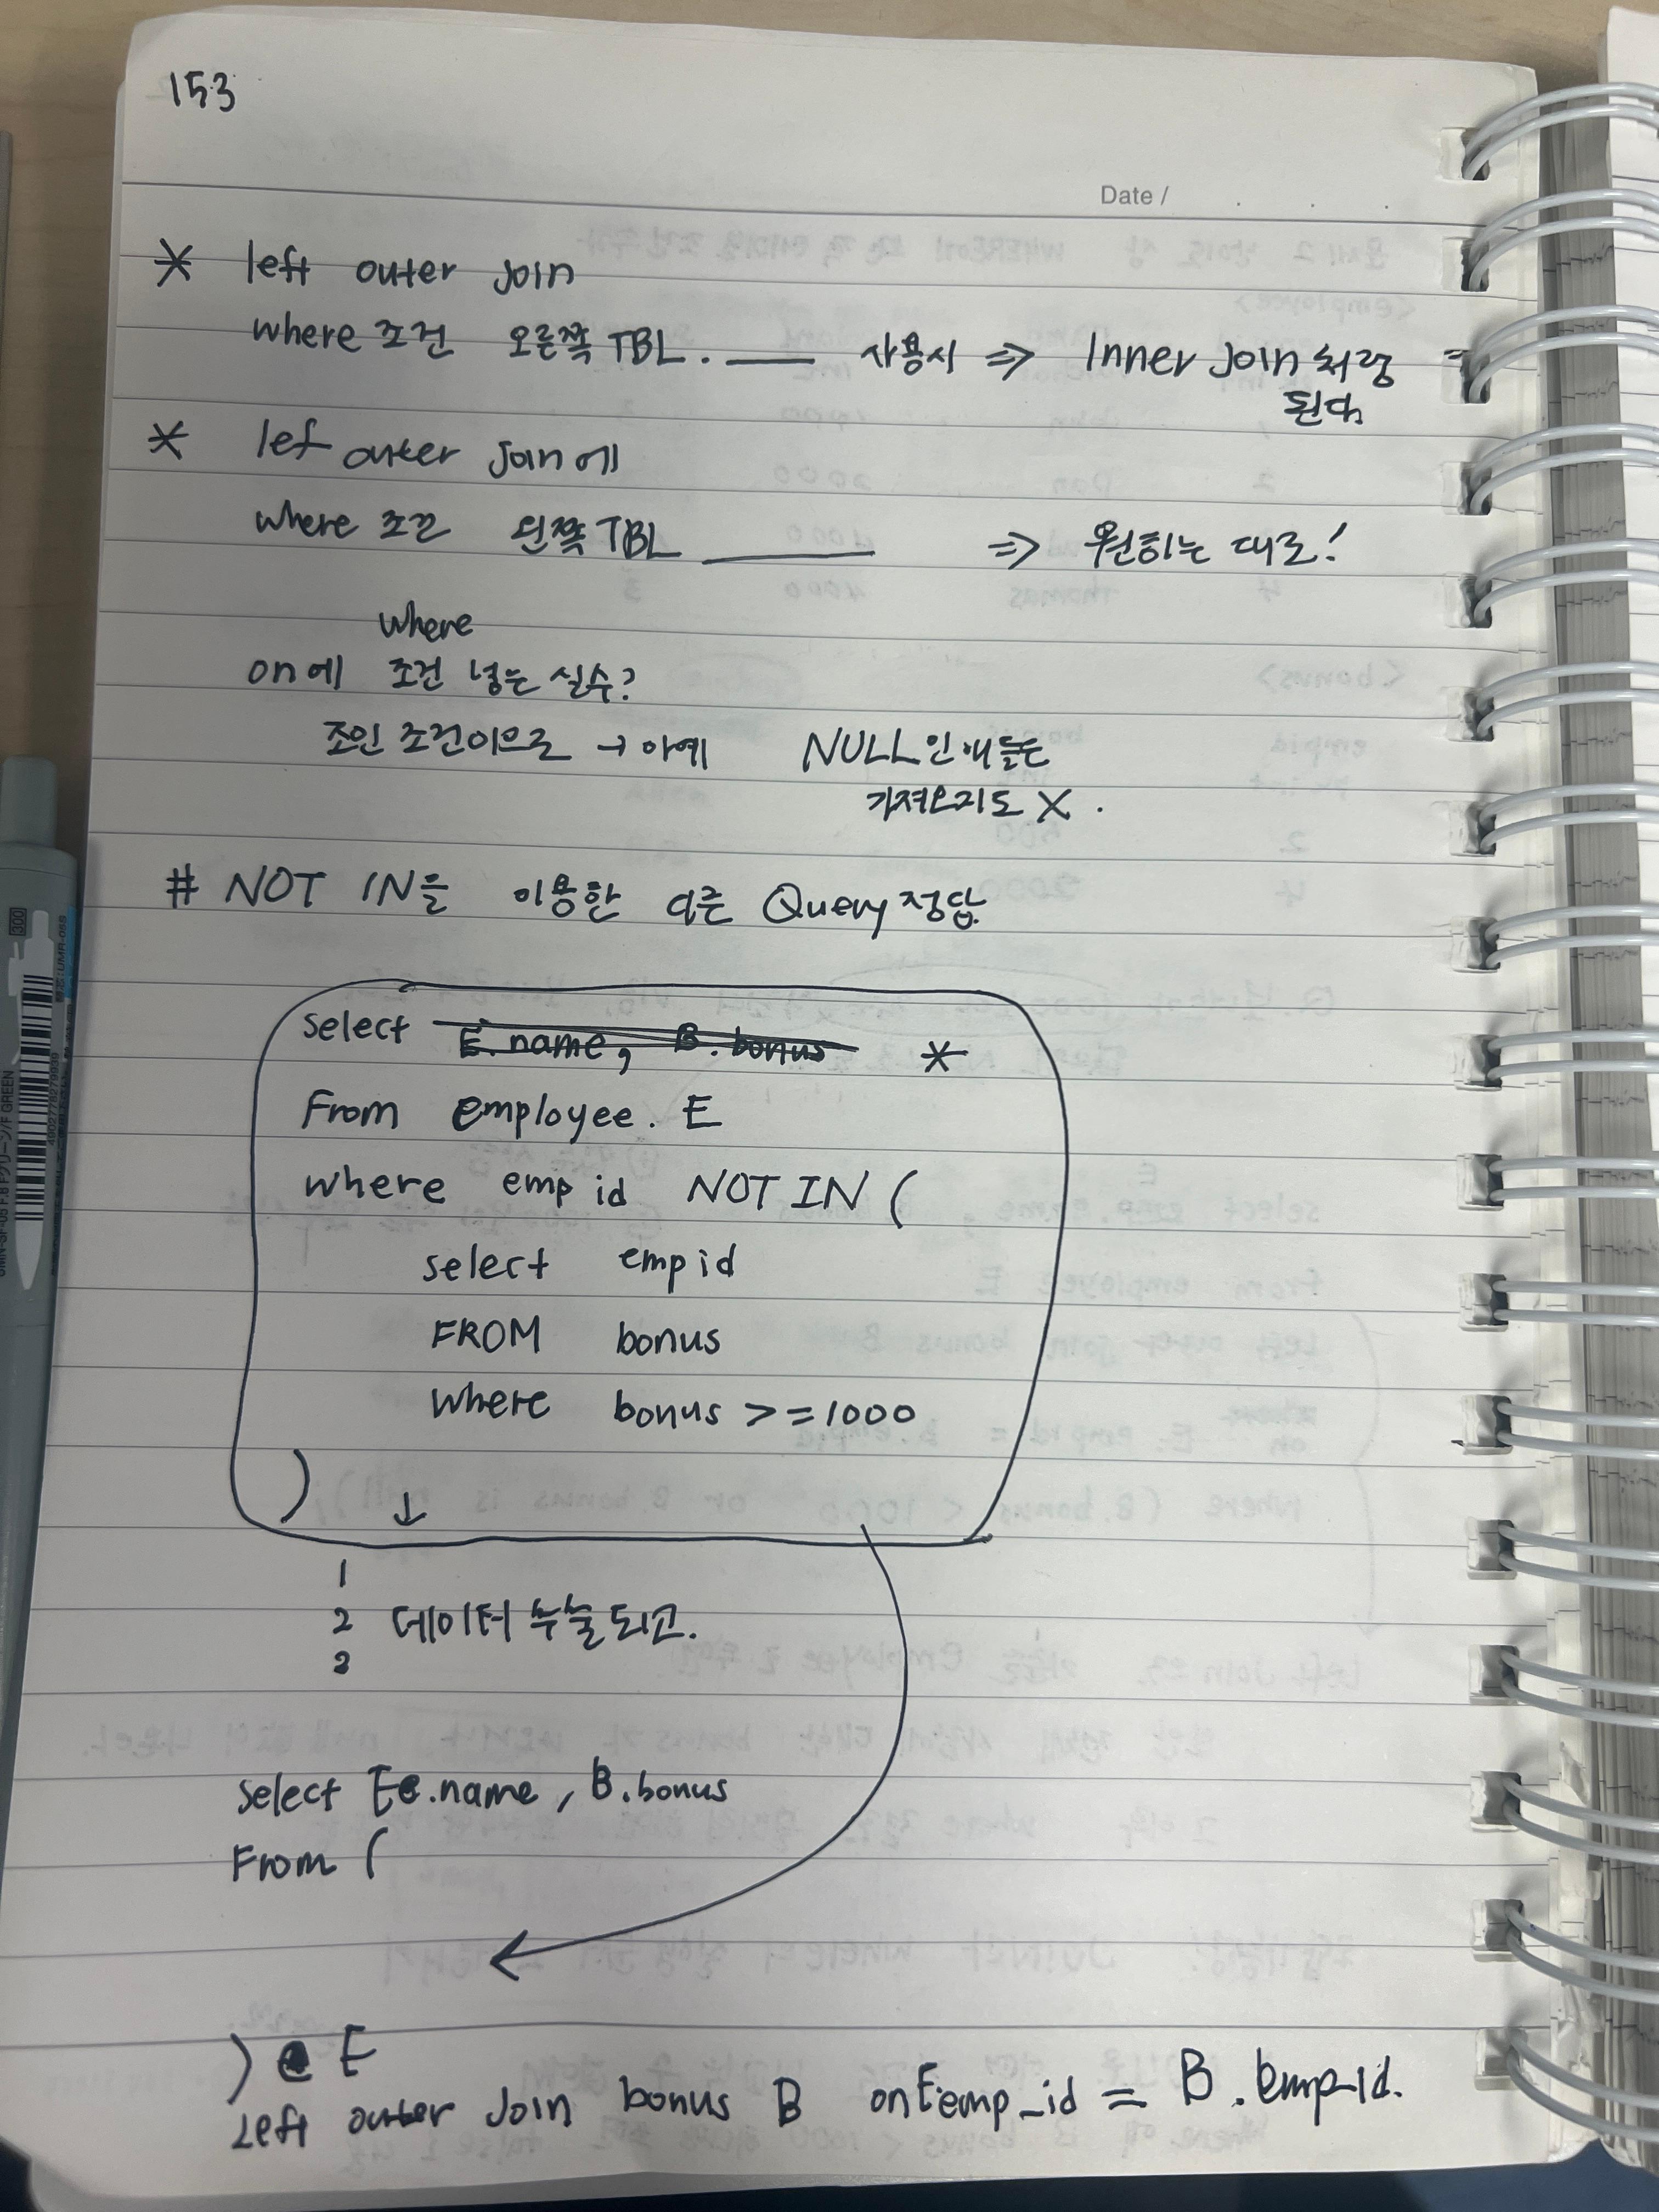 153
Date / . . .
* left outer join
where 조건 오른쪽 TBL. ___ 사용시 ⇒ Inner join 처럼
된다
* lef outer join에
where 조건 왼쪽 TBL ___ ⇒ 원하는 대로!
where
on에 조건 넣는 실수?
조인 조건이므로 → 아예 NULL인 애들은
가져오지도 X.
# NOT IN을 이용한 다른 Query 정답
select E.name, B.bonus *
From employee. E
where emp id NOT IN (
select emp id
FROM bonus
where bonus >= 1000
) ↓
1
2 데이터 추출되고.
3
select Ee.name, B.bonus
From (
) E
Left outer join bonus B on E.emp_id = B.emp_id.